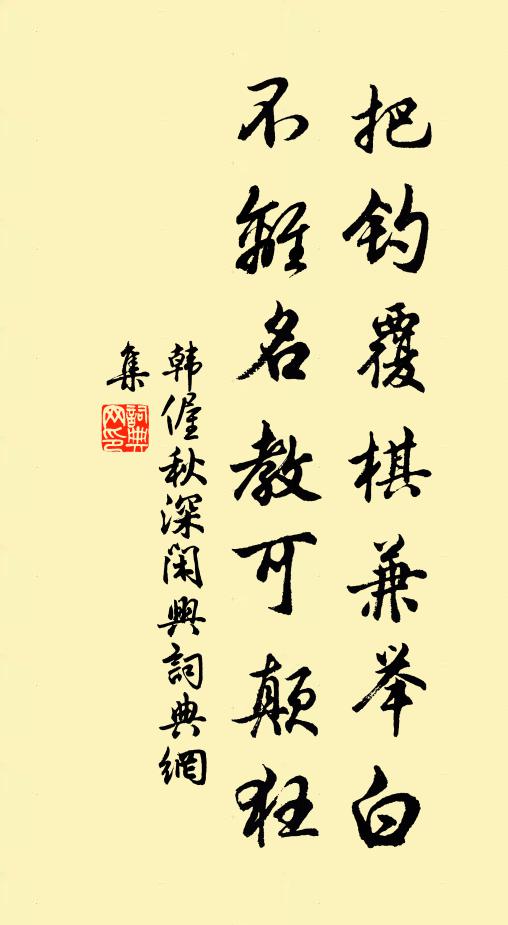 把钓覆棋兼举白
不離名教可颠狂
韩偓秋深闲興詞典網
集
詞典网印